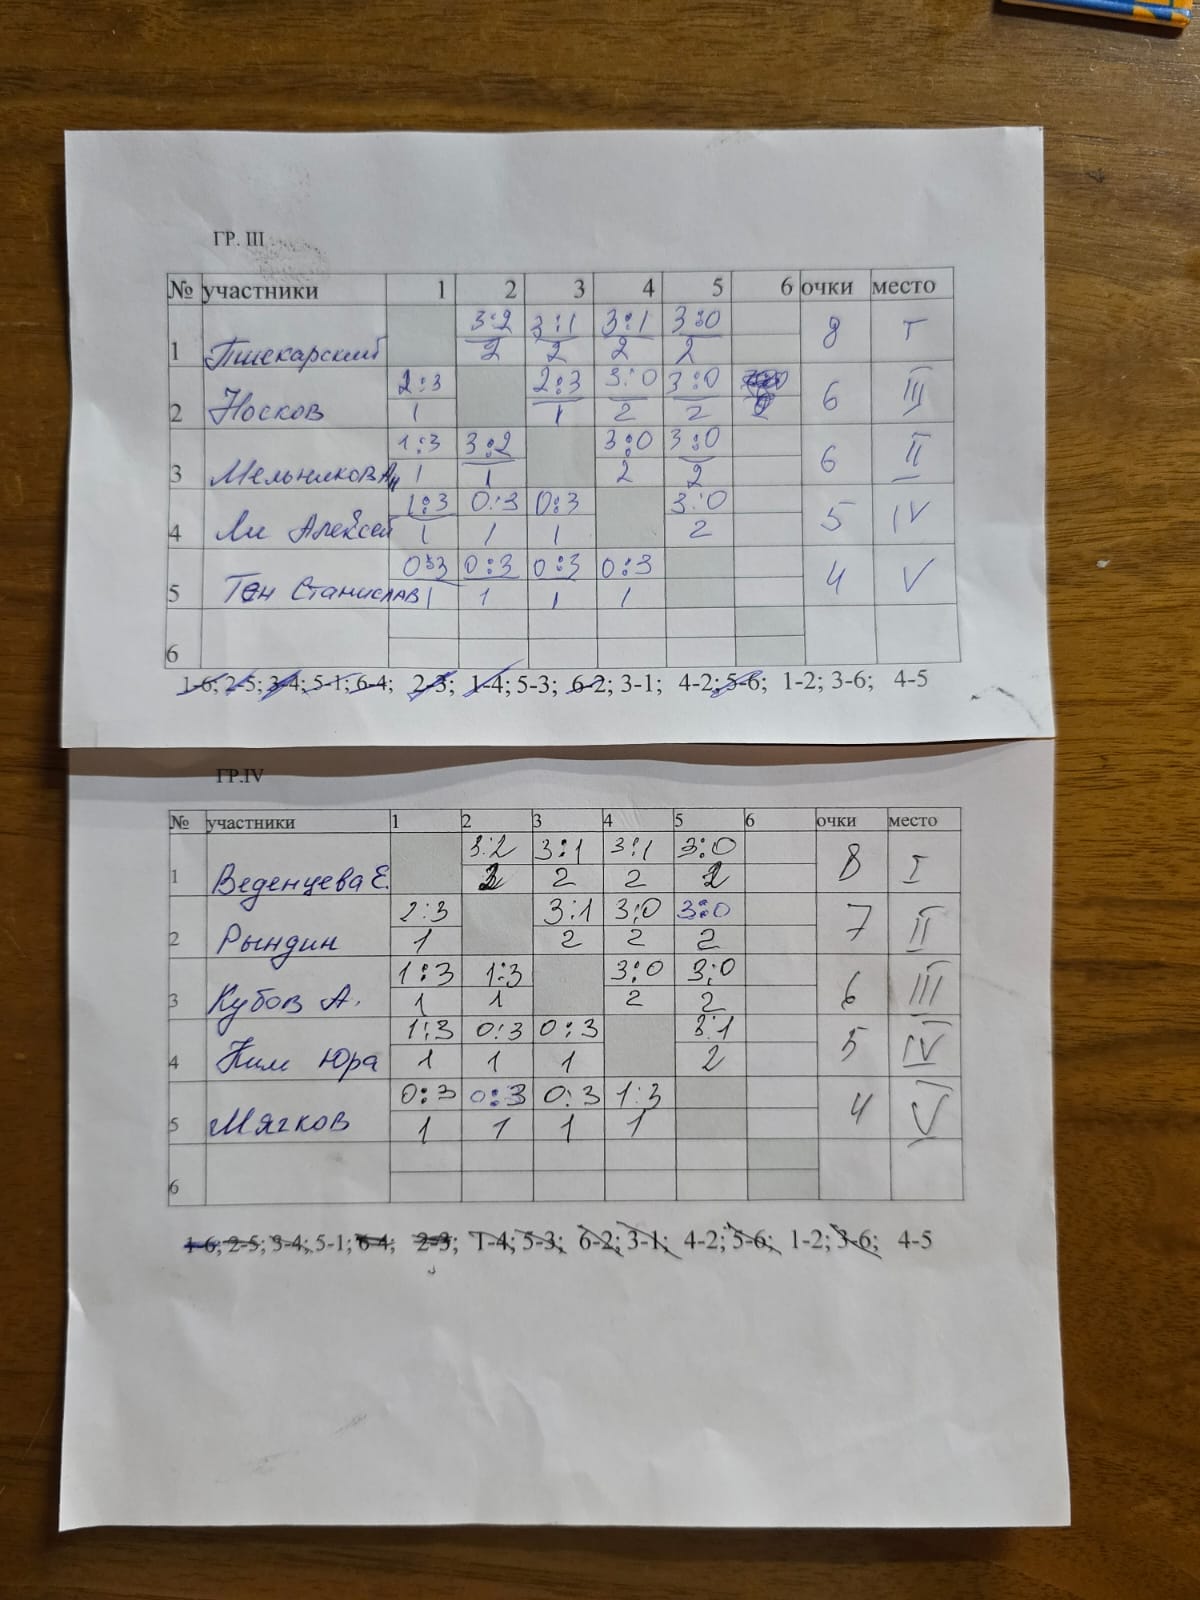 ГР. III
№ участники 1 2 3 4 5 6 очки место
3:2 3:1 3:1 3:0
1 Пшекарский 2 2 2 2 8 I
2:3 2:3 3:0 3:0
2 Носков 1 1 2 2 6 III
1:3 3:2 3:0 3:0
3 Мельников 1 1 2 2 6 II
1:3 0:3 0:3 3:0
4 Ли Алексей 1 1 1 2 5 IV
0:3 0:3 0:3 0:3
5 Тен Станислав 1 1 1 1 4 V
6
1-6; 2-5; 3-4; 5-1; 6-4; 2-3; 1-4; 5-3; 6-2; 3-1; 4-2; 5-6; 1-2; 3-6; 4-5
ГР.IV
№ участники 1 2 3 4 5 6 очки место
3:2 3:1 3:1 3:0
1 Веденцева Е. 2 2 2 2 8 I
2:3 3:1 3:0 3:0
2 Рындин 1 2 2 2 7 II
1:3 1:3 3:0 3:0
3 Кубов А. 1 1 2 2 6 III
1:3 0:3 0:3 3:1
4 Ким Юра 1 1 1 2 5 IV
0:3 0:3 0:3 1:3
5 Мягков 1 1 1 1 4 V
6
1-6; 2-5; 3-4; 5-1; 6-4; 2-3; 1-4; 5-3; 6-2; 3-1; 4-2; 5-6; 1-2; 3-6; 4-5